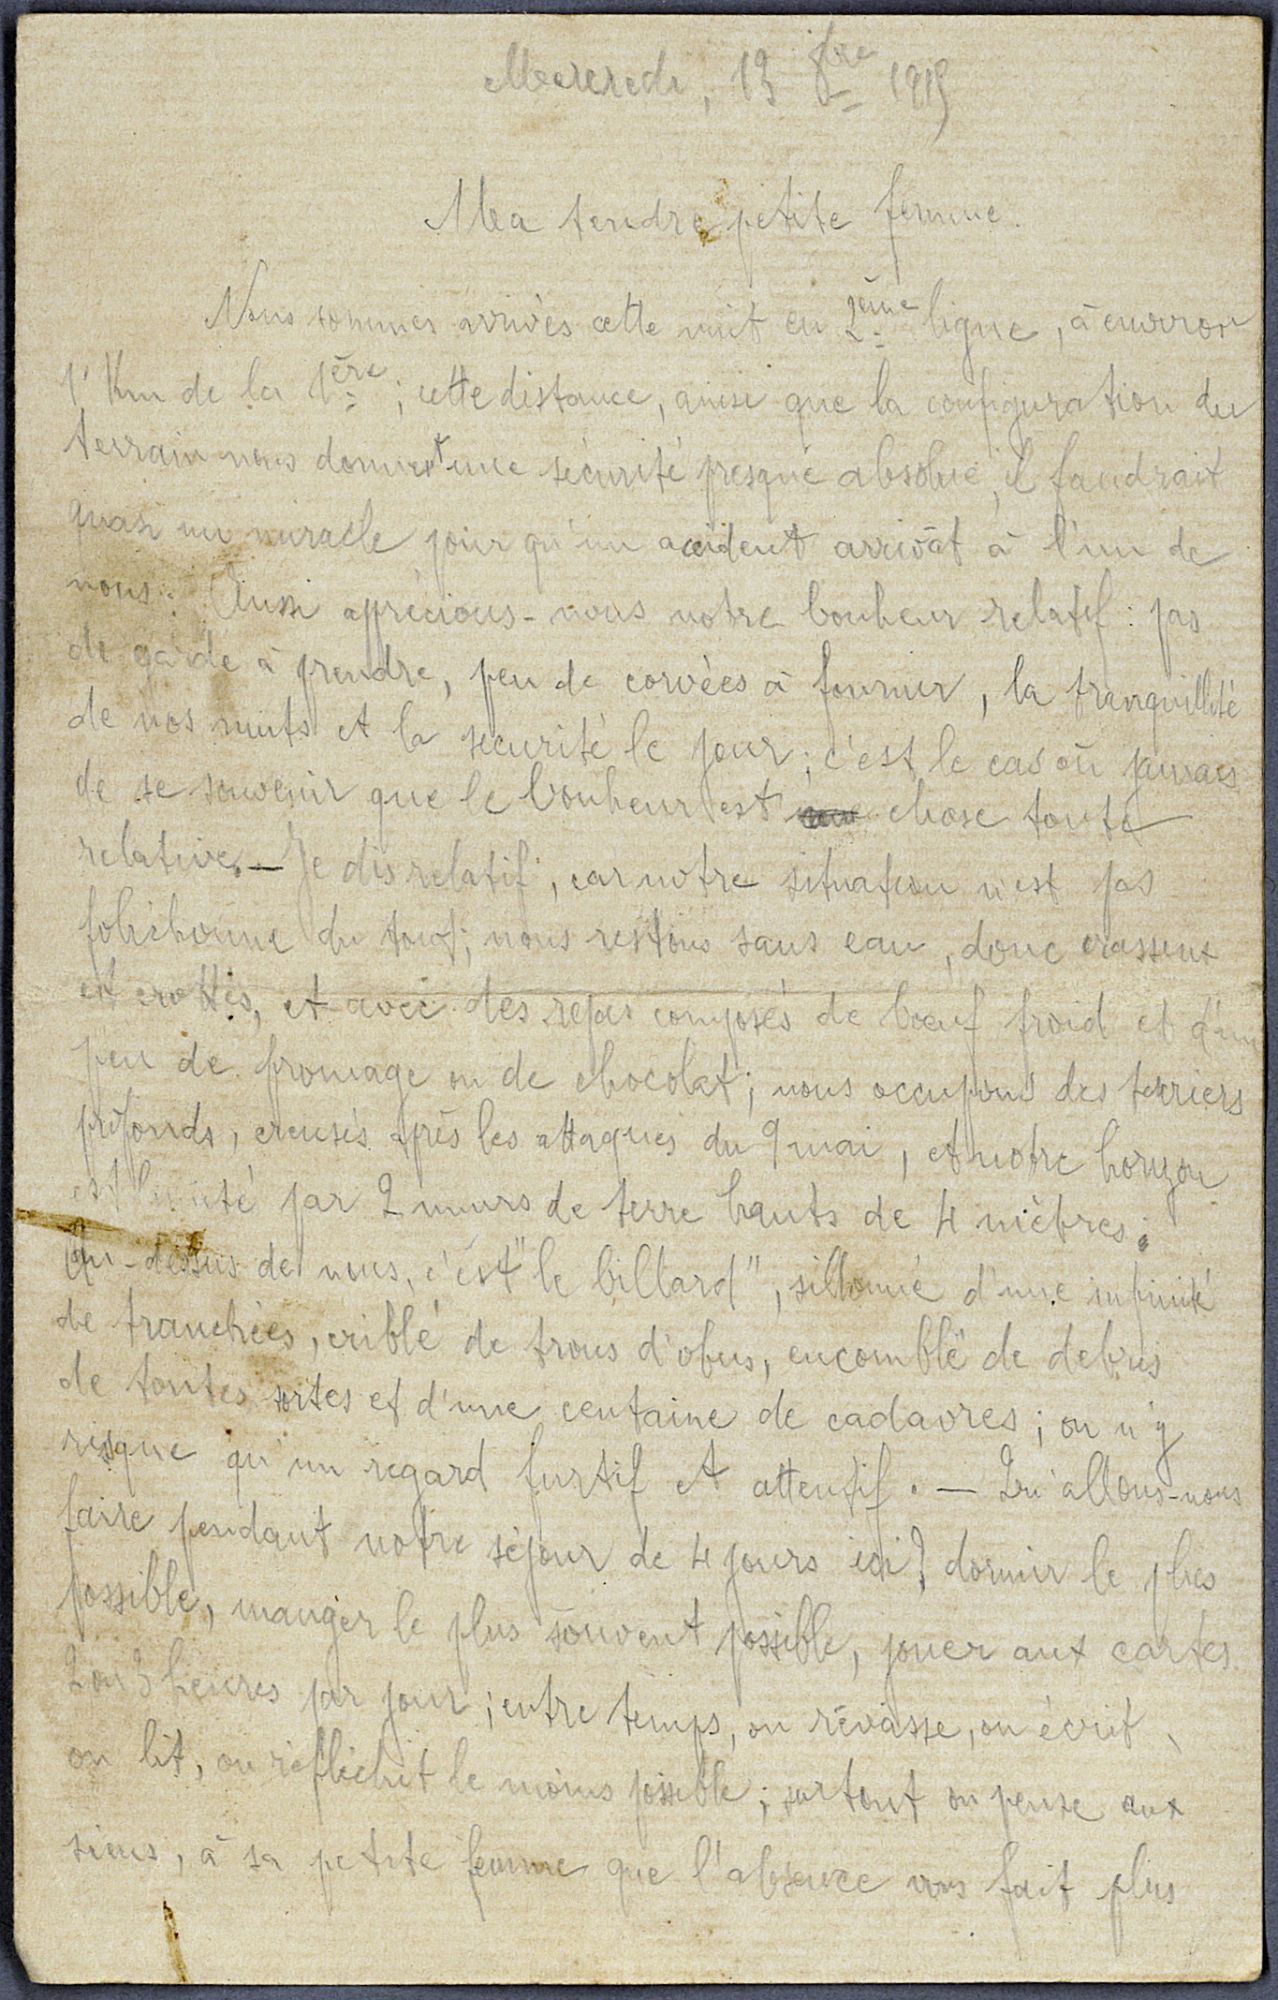 Mercredi, 13 8bre 1915
Ma tendre petite femme.
Nous sommes arrivés cette nuit en 2ème ligne, à environ
1 Km de la 1ère; cette distance, ainsi que la configuration du
terrain nous donnent une sécurité presque absolue, il faudrait
quasi un miracle pour qu'un accident arrivât à l'un de
nous. Aussi apprécions-nous notre bonheur relatif : pas
de garde à prendre, peu de corvées à fournir, la tranquillité
de nos nuits et la sécurité le jour; c'est le cas où jamais
de se souvenir que le bonheur est chose toute
relative. — Je dis relatif, car notre situation n'est pas
folichonne du tout; nous restons sans eau, donc crasseux
et crottés, et avec des repas composés de bœuf froid et d'un
peu de fromage ou de chocolat; nous occupons des terriers
profonds, creusés après les attaques du 9 mai, et notre horizon
est limité par 2 murs de terre hauts de 4 mètres;
Au-dessus de nous, c'est "le billard", sillonné d'une infinité
de tranchées, criblé de trous d'obus, encomblé de debris
de toutes sortes et d'une centaine de cadavres; on n'y
risque qu'un regard furtif et attentif. — Qu'allons-nous
faire pendant notre séjour de 4 jours ici? dormir le plus
possible, manger le plus souvent possible, jouer aux cartes
2 ou 3 heures par jour; entre temps, on rêvasse, on écrit,
on lit, on réfléchit le moins possible; surtout on pense aux
siens, à sa petite femme que l'absence vous fait plus